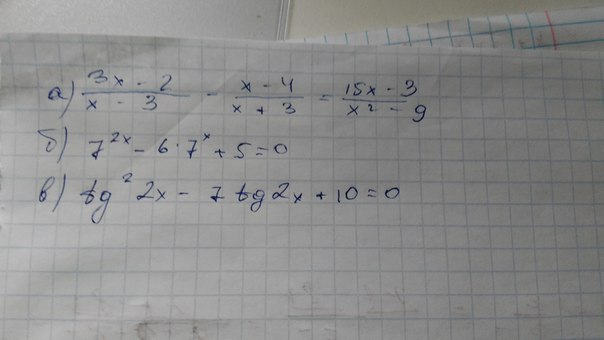 а) (3x - 2)/(x - 3) - (x - 4)/(x + 3) = (15x - 3)/(x² - 9)
б) 7^{2x} - 6 · 7^x + 5 = 0
в) tg² 2x - 7 tg 2x + 10 = 0